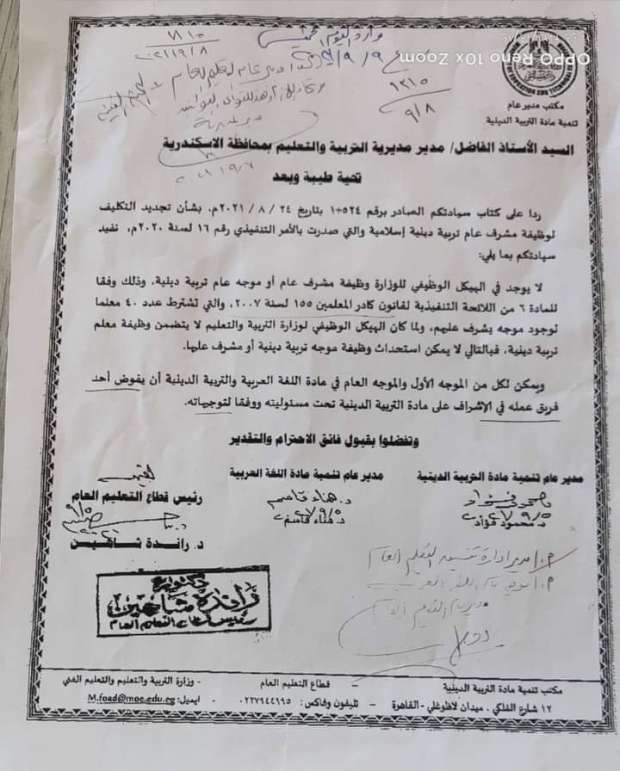 OPPO Reno 10x Zoom
١٨١٥
٢٠٢١/٩/٨
١٣١٥
٩/٨
مكتب مدير عام
تنمية مادة التربية الدينية
السيد الأستاذ الفاضل/ مدير مديرية التربية والتعليم بمحافظة الاسكندرية
تحية طيبة وبعد
ردا على كتاب سيادتكم الصادر برقم ١٠٥٢٤ بتاريخ ٢٤ / ٨ / ٢٠٢١م، بشأن تجديد التكليف
لوظيفة مشرف عام تربية دينية إسلامية والتي صدرت بالأمر التنفيذي رقم ١٦ لسنة ٢٠٢٠م، نفيد
سيادتكم بما يلي:
لا يوجد في الهيكل الوظيفي للوزارة وظيفة مشرف عام أو موجه عام تربية دينية، وذلك وفقا
للمادة ٦ من اللائحة التنفيذية لقانون كادر المعلمين ١٥٥ لسنة ٢٠٠٧، والتي تشترط عدد ٤٠ معلما
لوجود موجه يشرف عليهم، ولما كان الهيكل الوظيفي لوزارة التربية والتعليم لا يتضمن وظيفة معلم
تربية دينية، فبالتالي لا يمكن استحداث وظيفة موجه تربية دينية أو مشرف عليها.
ويمكن لكل من الموجه الأول والموجه العام في مادة اللغة العربية والتربية الدينية أن يفوض أحد
فريق عمله في الإشراف على مادة التربية الدينية تحت مسئوليته ووفقا لتوجيهاته.
وتفضلوا بقبول فائق الاحترام والتقدير
مدير عام تنمية مادة التربية الدينية
مدير عام تنمية مادة اللغة العربية
رئيس قطاع التعليم العام
د. محمود فؤاد
د. هناء قاسم
د. راندة شاهين
دكتورة
راندة شاهين
رئيس قطاع التعليم العام
مكتب تنمية مادة التربية الدينية - قطاع التعليم العام - وزارة التربية والتعليم والتعليم الفني
١٢ شارع الفلكي - ميدان لاظوغلي - القاهرة - تليفون وفاكس: ٠٢٢٧٩٤٤٦٩٥ - ايميل: M.foad@moe.edu.eg